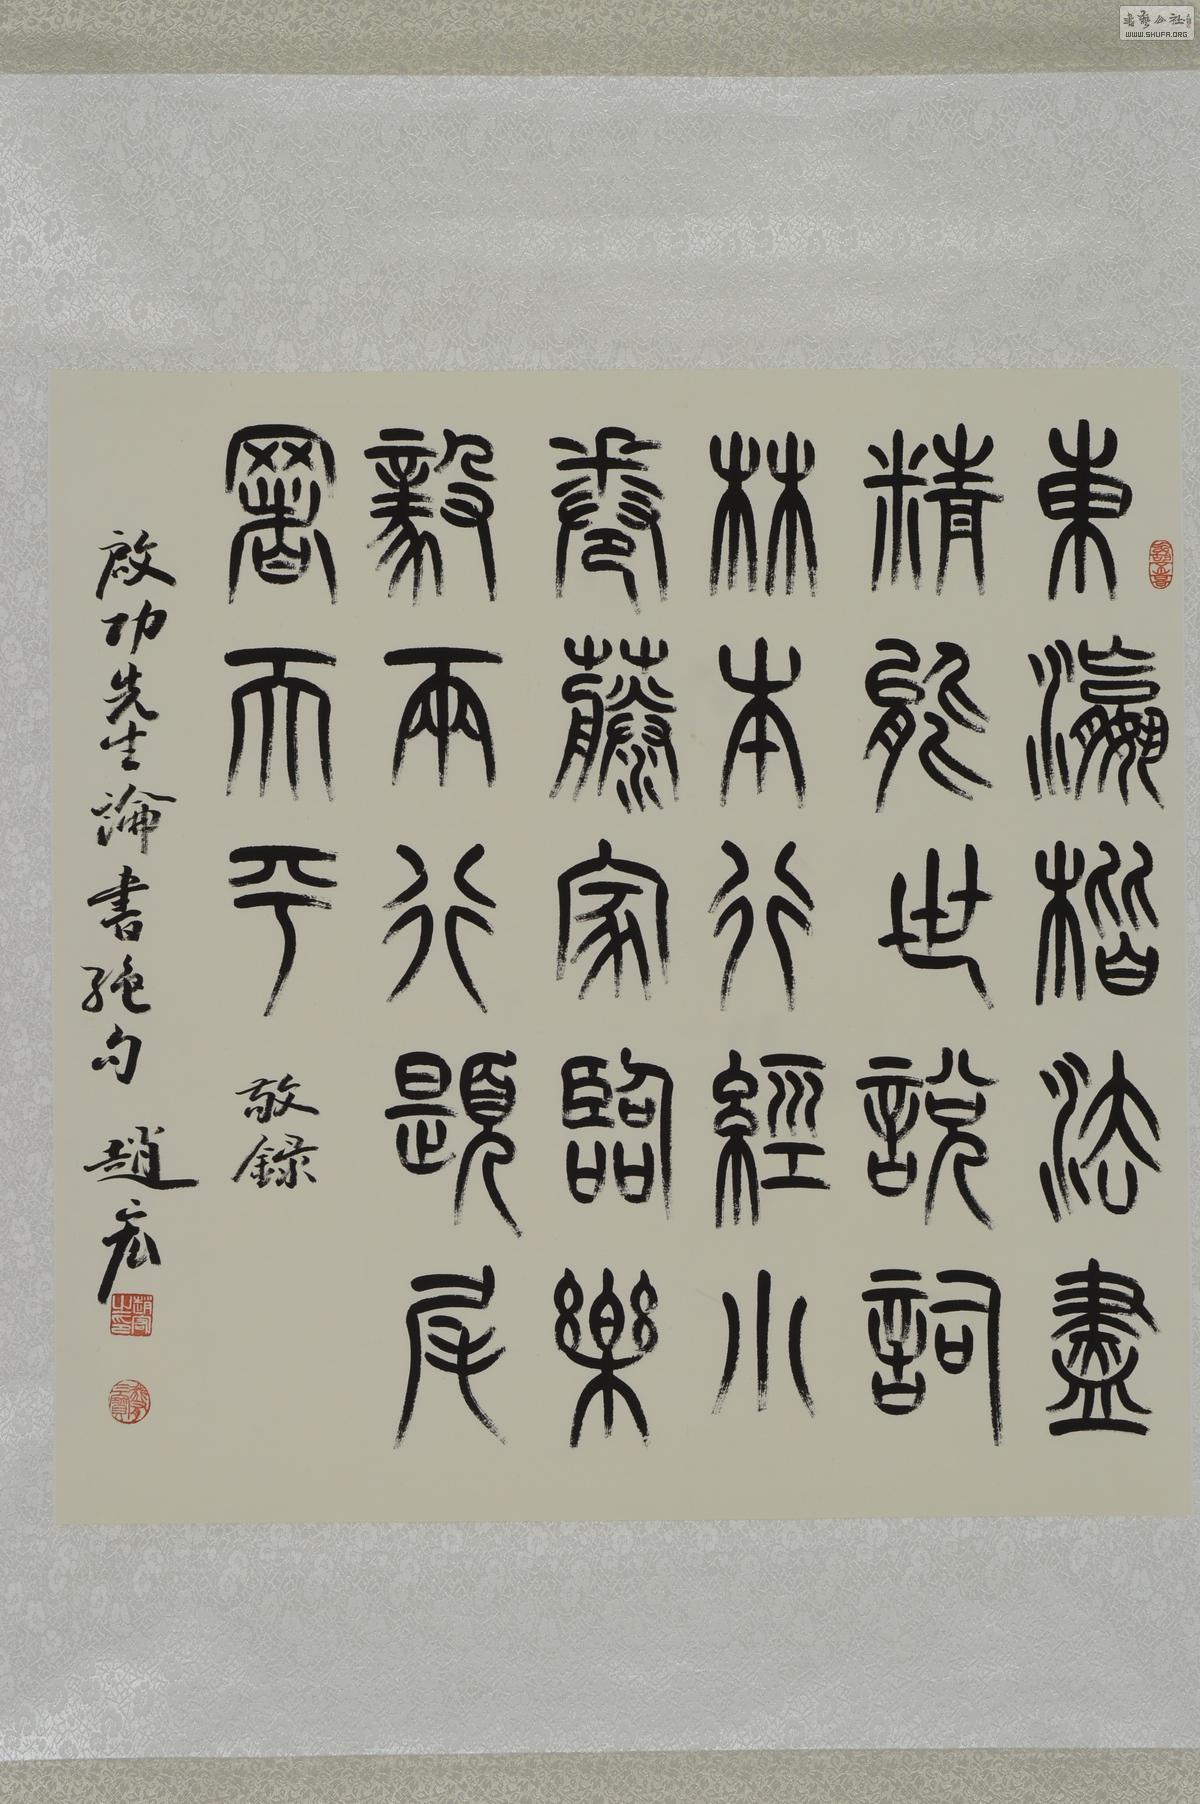 東瀛楷法盡
精能世說詞
林本行經小
卷藤家臨樂
毅兩行題尾
署天平 敬錄
啟功先生論書絕句 趙宏
趙宏之印
書藝公社
WWW.SHUFA.ORG